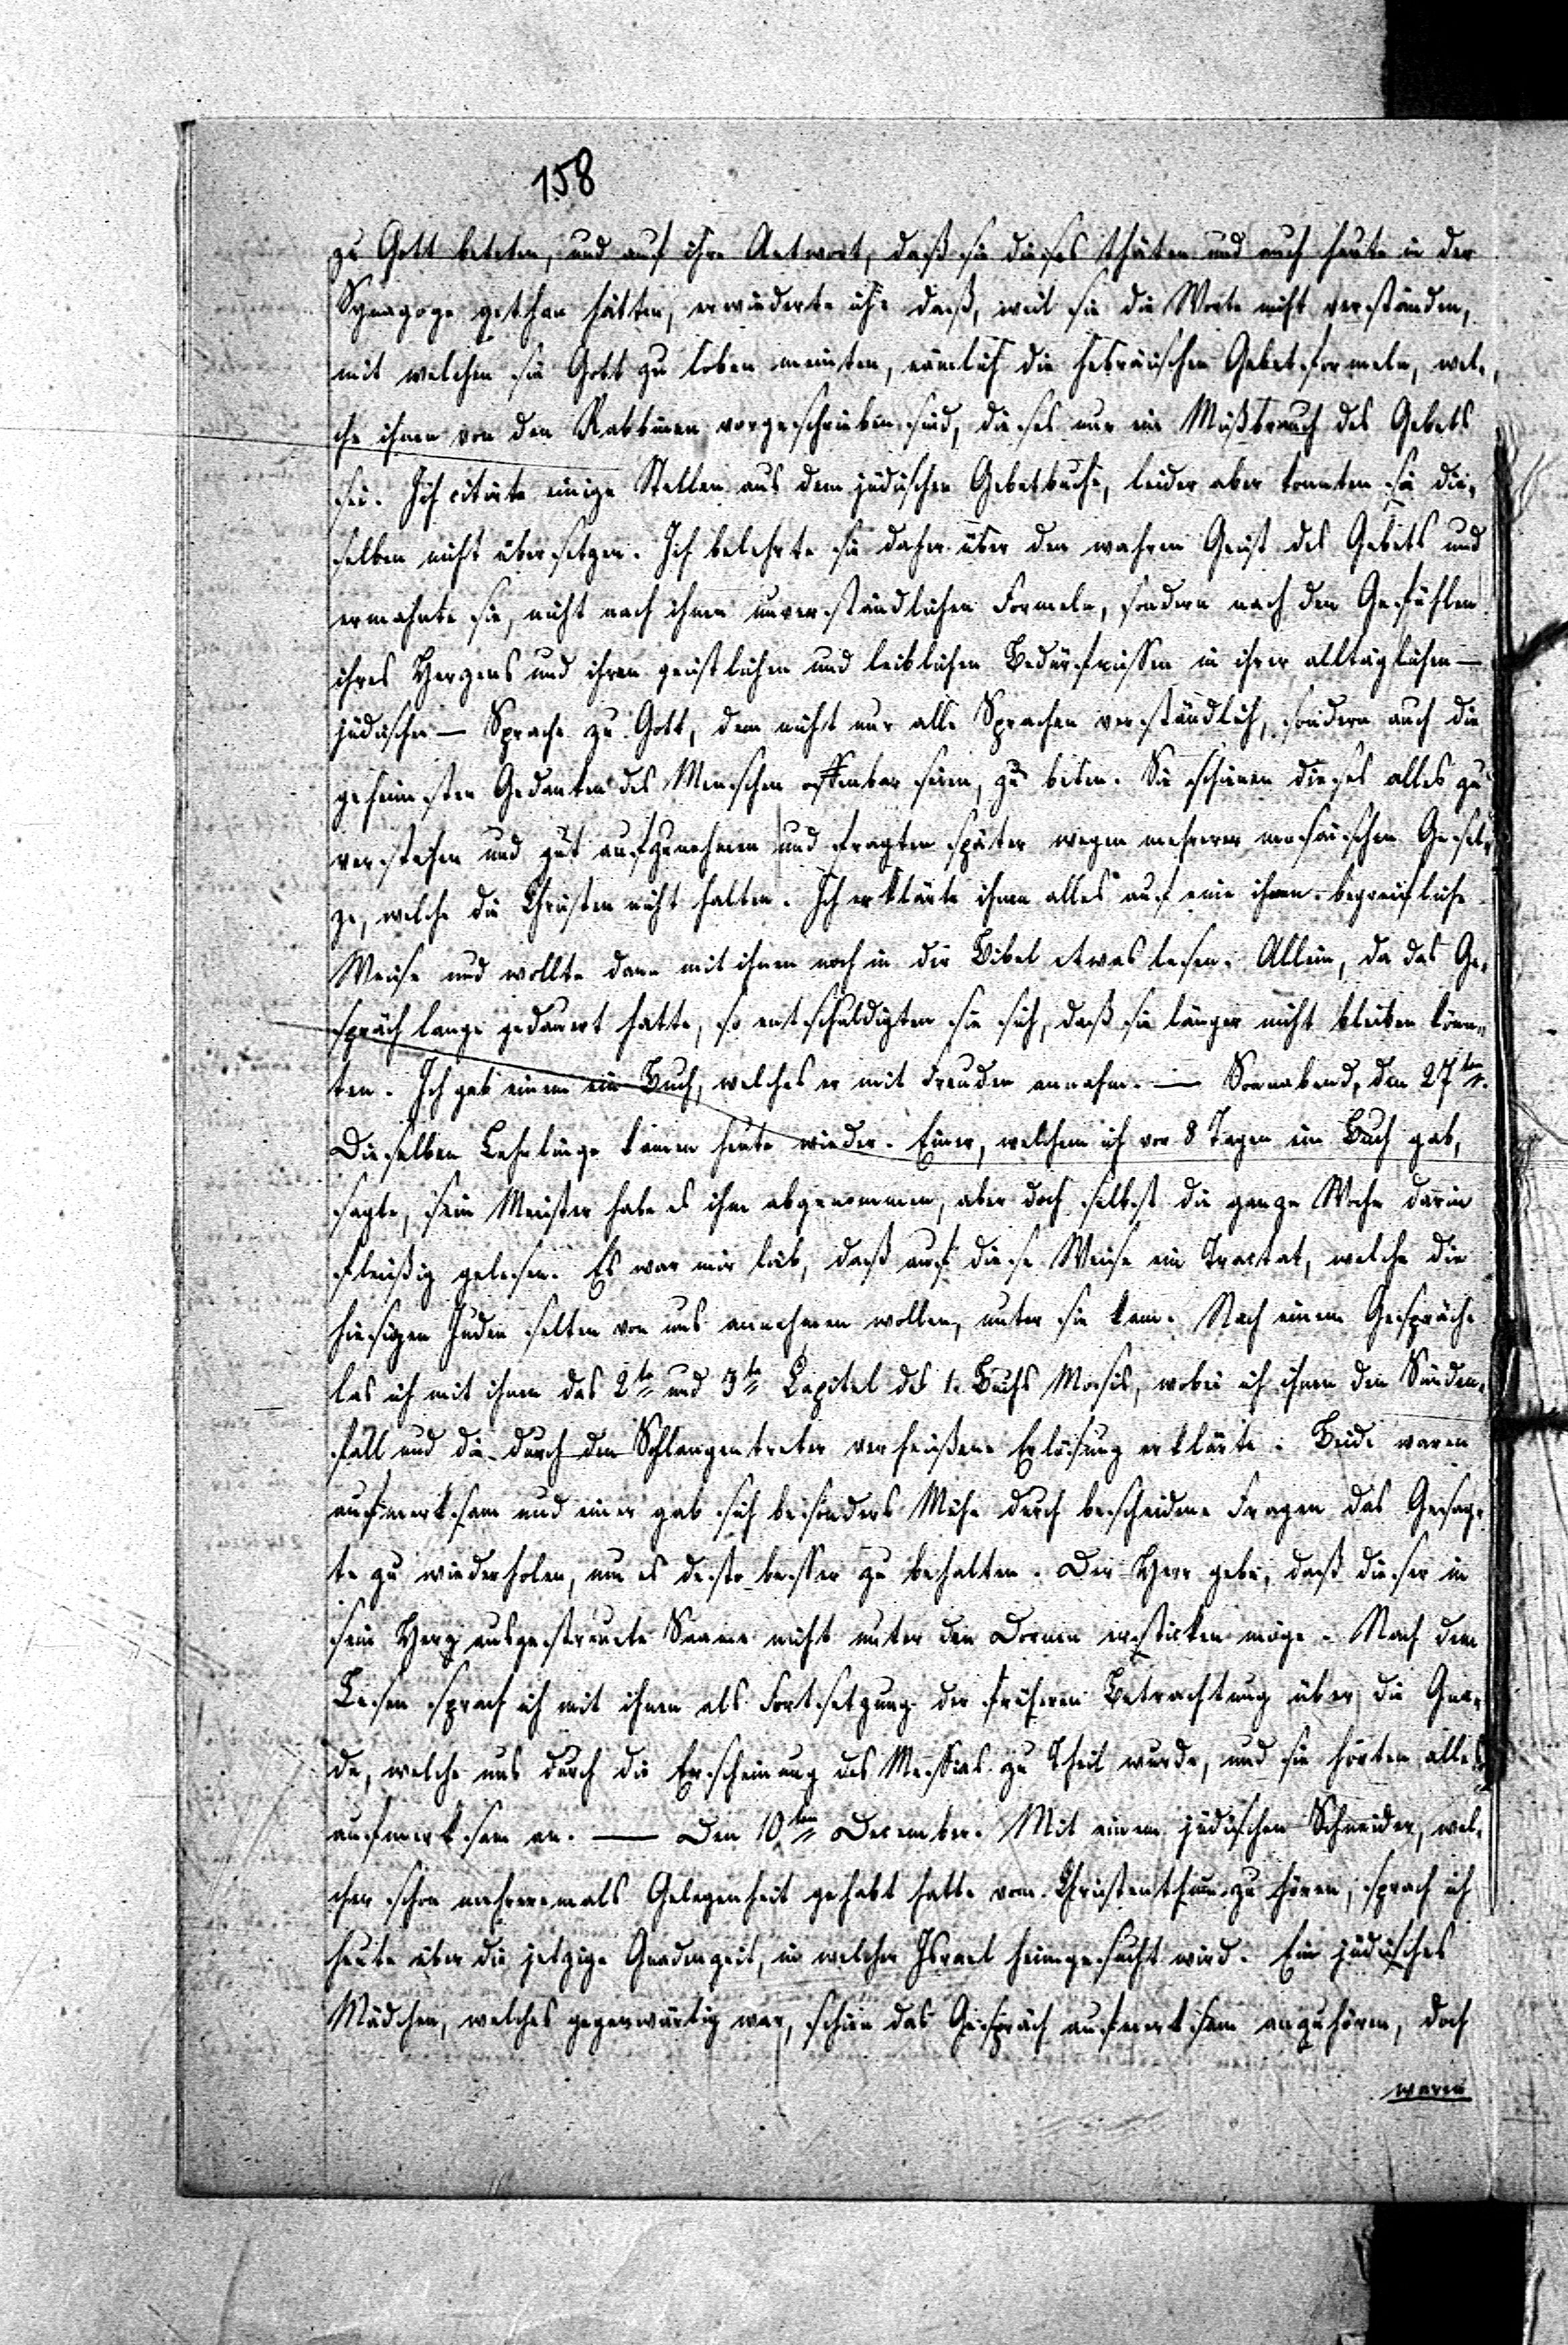 158
zu Gott beteten, und auf ihre Antwort, daß sie dieses thäten und auch heute in der
Synagoge gethan hätten, erwiederte ich: daß, weil sie die Worte nicht verständen,
mit welchen sie Gott zu loben meinten, nämlich die hebräischen Gebetsformeln, wel-
che ihnen von den Rabbinen vorgeschrieben sind, dieses nur ein Mißbrauch des Gebets
sei. Ich citirte einige Stellen aus dem jüdischen Gebetbuche, leider aber konnten sie die-
selben nicht übersetzen. Ich belehrte sie daher über den wahren Geist des Gebets und
ermahnte sie, nicht nach ihnen unverständlichen Formeln, sondern nach den Gefühlen
ihres Herzens und ihren geistlichen und leiblichen Bedürfnissen in ihrer alltäglichen —
jüdischen — Sprache zu Gott, dem nicht nur alle Sprachen verständlich, sondern auch die
geheimsten Gedanken des Menschen offenbar seien, zu beten. Sie schienen dieses alles zu
verstehen und gut aufzunehmen und fragten später wegen mehrerer mosaischen Gesetz-
ze, welche die Christen nicht halten. Ich erklärte ihnen alles auf eine ihnen begreifliche
Weise und wollte dann mit ihnen noch in der Bibel etwas lesen. Allein, da das Ge-
spräch lange gedauert hatte, so entschuldigten sie sich, daß sie länger nicht bleiben könn-
ten. Ich gab einem ein Buch, welches er mit Freuden annahm. — Sonnabend, den 27ten.
Dieselben Lehrlinge kamen heute wieder. Einer, welchem ich vor 8 Tagen ein Buch gab,
sagte, sein Meister habe es ihm abgenommen, aber doch selbst die ganze Woche darin
fleißig gelesen. Es war mir lieb, daß auf diese Weise ein Tractat, welche die
hiesigen Juden selten von uns annehmen wollen, unter sie kam. Nach einem Gespräche
las ich mit ihnen das 2te und 3te Capitel des 1. Buchs Mosis, wobei ich ihnen den Sünden-
fall und die durch den Schlangentreter verheißene Erlösung erklärte. Beide waren
aufmerksam und einer gab sich besonders Mühe durch bescheidene Fragen das Gesag-
te zu wiederholen, um es desto besser zu behalten. Der Herr gebe, daß dieser in
sein Herz ausgestreuete Saame nicht unter den Dornen ersticken möge. Nach dem
Lesen sprach ich mit ihnen als Fortsetzung der früheren Betrachtung über die Gna-
de, welche uns durch die Erscheinung des Messias zu Theil wurde, und sie hörten alles
aufmerksam an. — Den 10ten December. Mit einem jüdischen Schneider, wel-
cher schon mehreremals Gelegenheit gehabt hatte vom Christenthum zu hören, sprach ich
heute über die jetzige Gnadenzeit, in welcher Israel heimgesucht wird. Ein jüdisches
Mädchen, welches gegenwärtig war, schien das Gespräch aufmerksam anzuhören, doch
waren